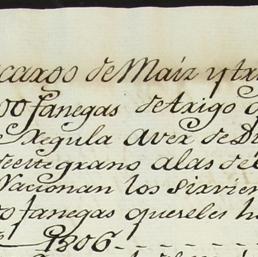 caxgo de Maiz y tri
00 fanegas de trigo
Regula aver de D
de este grano a las de
Nacionan los Sirvien
0 fanegas que se les h
1806